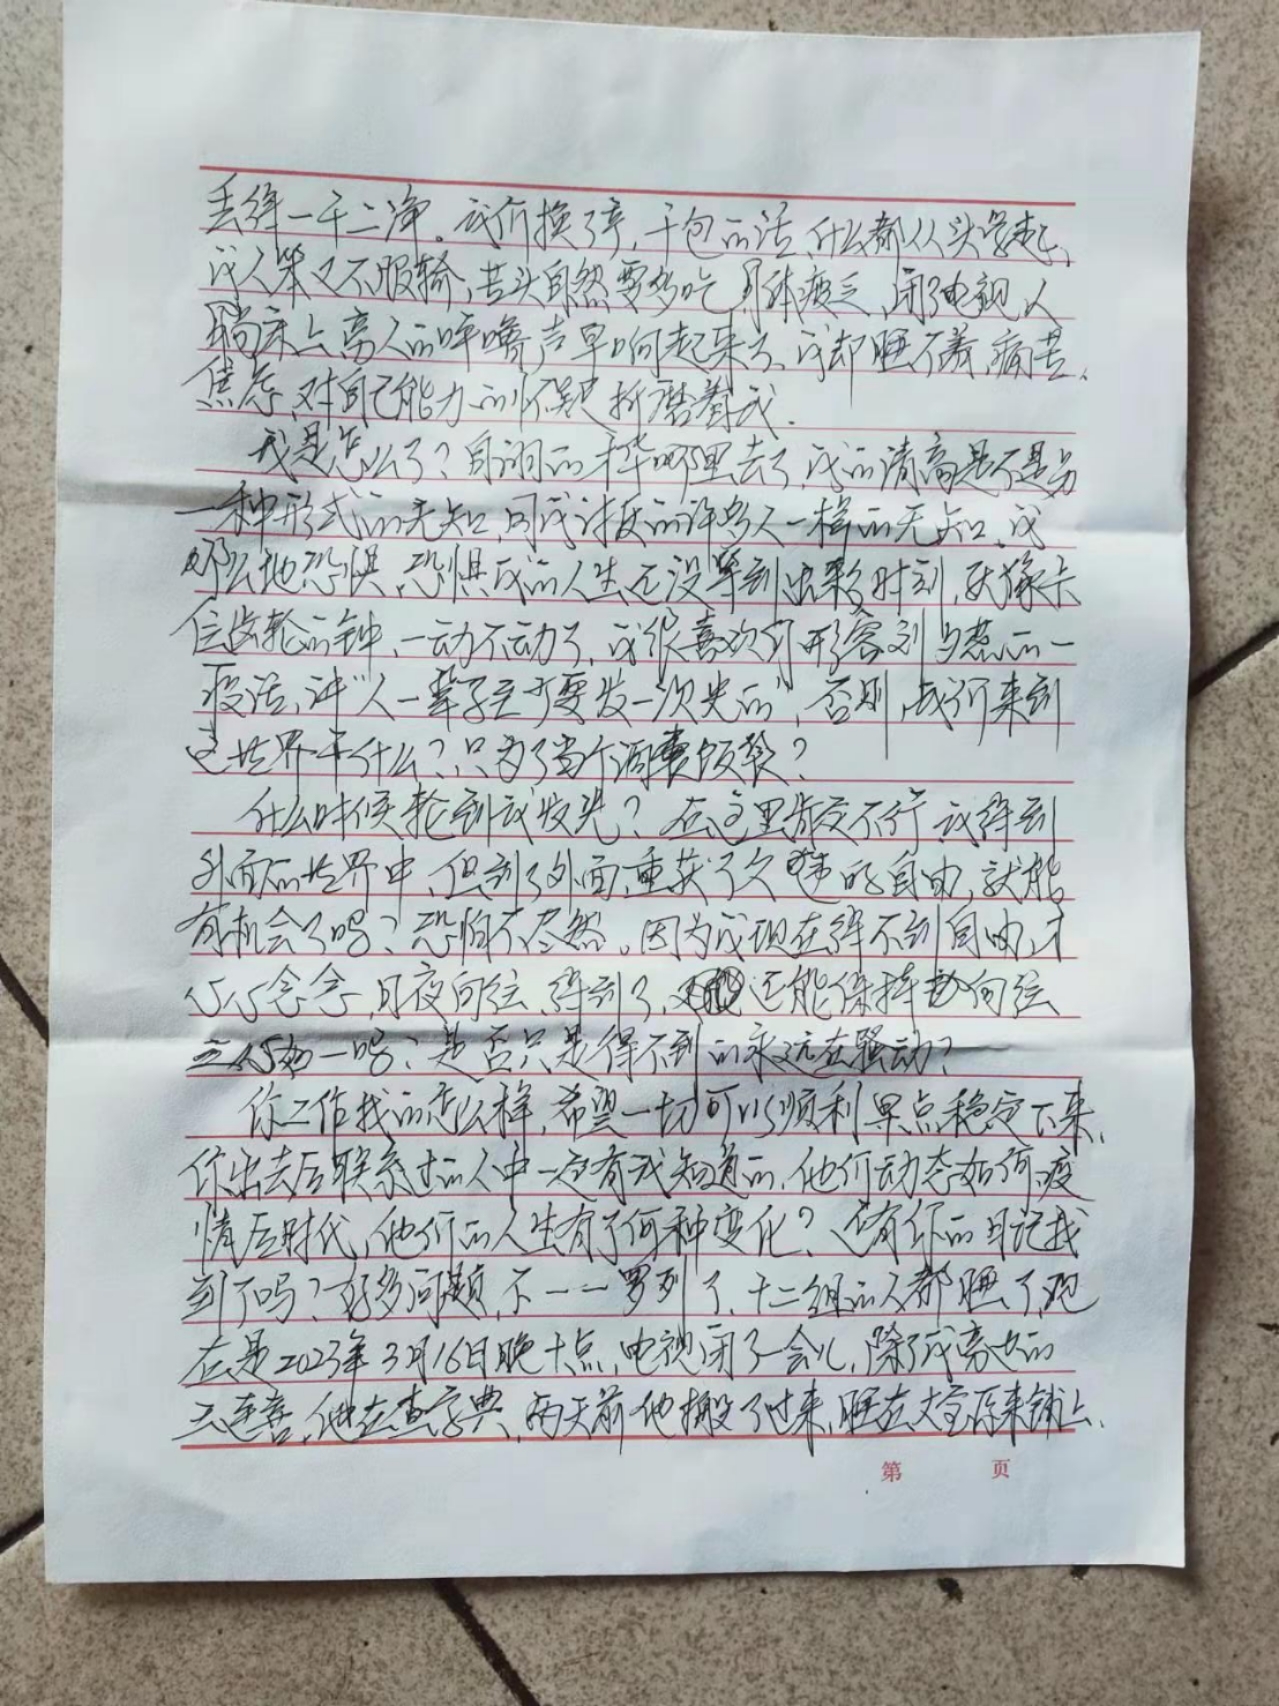 丢得一干二净。我们换了车,干包的活,什么都从头学起,
我人笨又不服输,苦头自然要多吃,身体疲乏,闭了电视,人
躺床上,离人的呼噜声早响起来了,我却睡不着,痛苦、
焦虑、对自己能力的怀疑折磨着我.
我是怎么了?自诩的才华哪里去了,我的清高是不是另
一种形式的无知,同我讨厌的许多人一样的无知,我
那么地恐惧,恐惧我的人生还没等到出彩时刻,就像卡
住齿轮的钟,一动不动了,我很喜欢何形容刘与焘的一
段话,讲“人一辈子至少要发一次光的”,否则,我们来到
这世界干什么?只为了当个酒囊饭袋?
什么时候轮到我发光?在这里肯定不行,我得到
外面的世界中,但到了外面,重获了久违的自由,就能
有机会了吗?恐怕不尽然,因为我现在得不到自由,才
心心念念,日夜向往,得到了,还能保持向往
之心如一吗?是否只是得不到的永远在骚动?
你工作找的怎么样,希望一切可以顺利,早点稳定下来,
你出去后联系过的人中一定有我知道的,他们动态如何,疫
情后时代,他们的人生有了何种变化?还有你的日记找
到了吗?好多问题,不一一罗列了,十二组的人都睡了,现
在是2023年3月16日晚十点,电视闭了一会儿,除了我旁边的
王连喜,他在查字典,两天前他搬了过来,睡在文宝原来铺上,
第 页